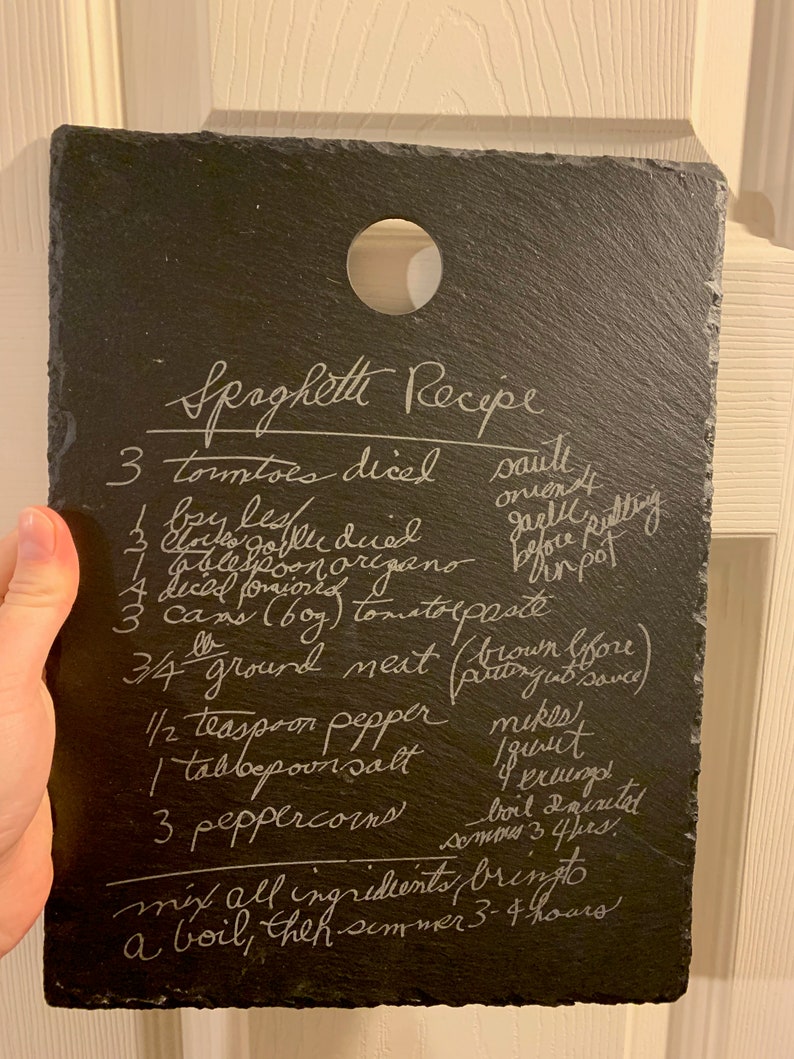 Spaghetti Recipe
3 tomatoes diced
1 bay leaf
3 cloves garlic diced
1 tablespoon oregano
4 diced onions
3 cans (6 oz) tomatoe paste
3/4 lb ground meat (brown before
putting into sauce)
1/2 teaspoon pepper
1 tablespoon salt
3 peppercorns
saute
onions &
garlic
before putting
in pot
makes
1 quart
4 servings
boil 2 minutes
simmer 3 4 hrs.
mix all ingredients, bring to
a boil, then simmer 3-4 hours